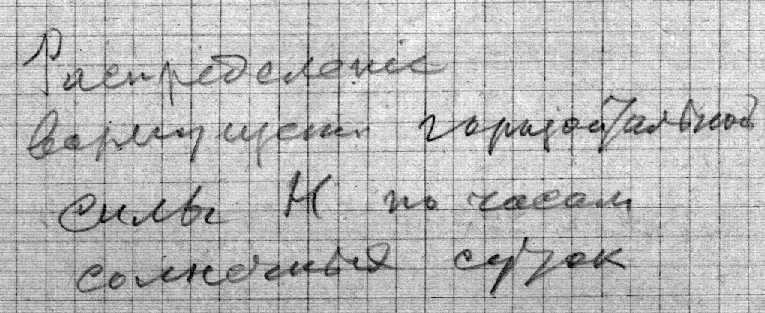 Распределение
возмущения горизонтальной
силы H по часам
солнечных суток